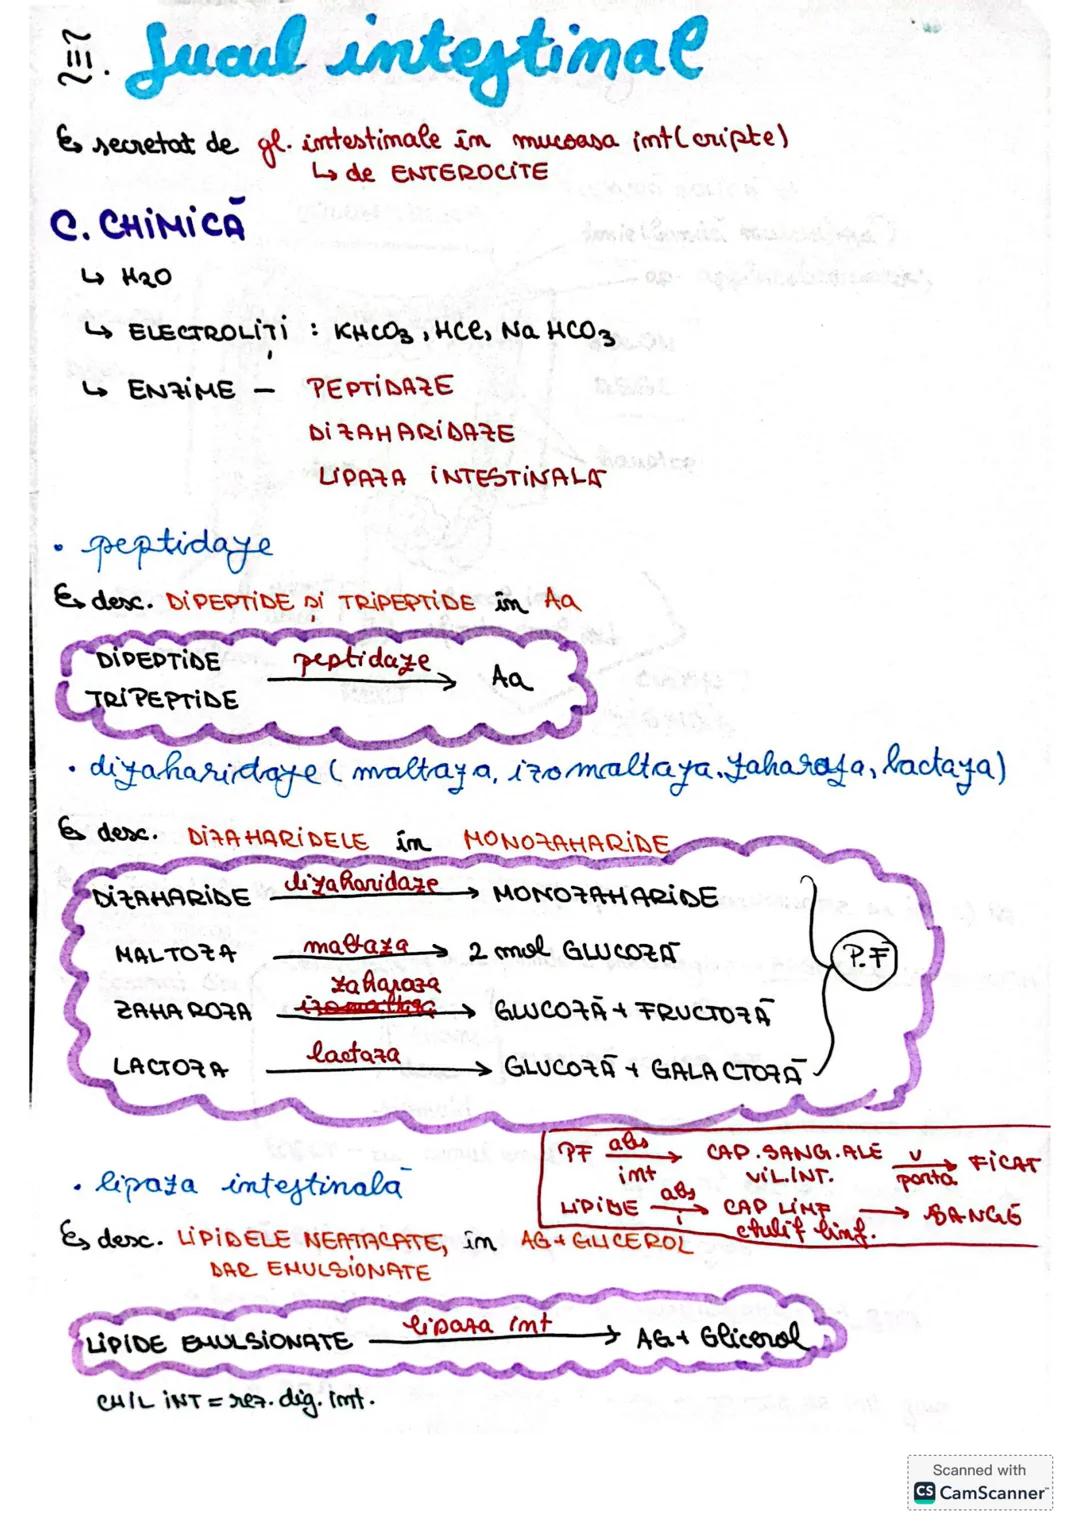 III. Sucul intestinal
secretat de gl. intestinale în mucoasa int (cripte)
↳ de ENTEROCITE
C. CHIMICĂ
↳ H2O
↳ ELECTROLIȚI : KHCO3, HCl, NaHCO3
↳ ENZIME — PEPTIDAZE
DIZAHARIDAZE
LIPAZA INTESTINALĂ
• peptidaze
desc. DIPEPTIDE ȘI TRIPEPTIDE în Aa
DIPEPTIDE peptidaze → Aa
TRIPEPTIDE
• dizaharidaze (maltaza, izomaltaza, zaharaza, lactaza)
desc. DIZAHARIDELE în MONOZAHARIDE
DIZAHARIDE dizaharidaze → MONOZAHARIDE
MALTOZA maltaza → 2 mol GLUCOZĂ
P.F
ZAHAROZA zaharaza → GLUCOZĂ + FRUCTOZĂ
LACTOZA lactaza → GLUCOZĂ + GALACTOZĂ
PF abs int → CAP. SANG. ALE VIL. INT. v porta → FICAT
LIPIDE abs → CAP LIMF chilif limf. → SÂNGE
• lipaza intestinală
desc. LIPIDELE NEATACATE, în AG + GLICEROL
DAR EMULSIONATE
LIPIDE EMULSIONATE lipaza int → AG + Glicerol
CHIL INT = rez. dig. int.
Scanned with
CS CamScanner